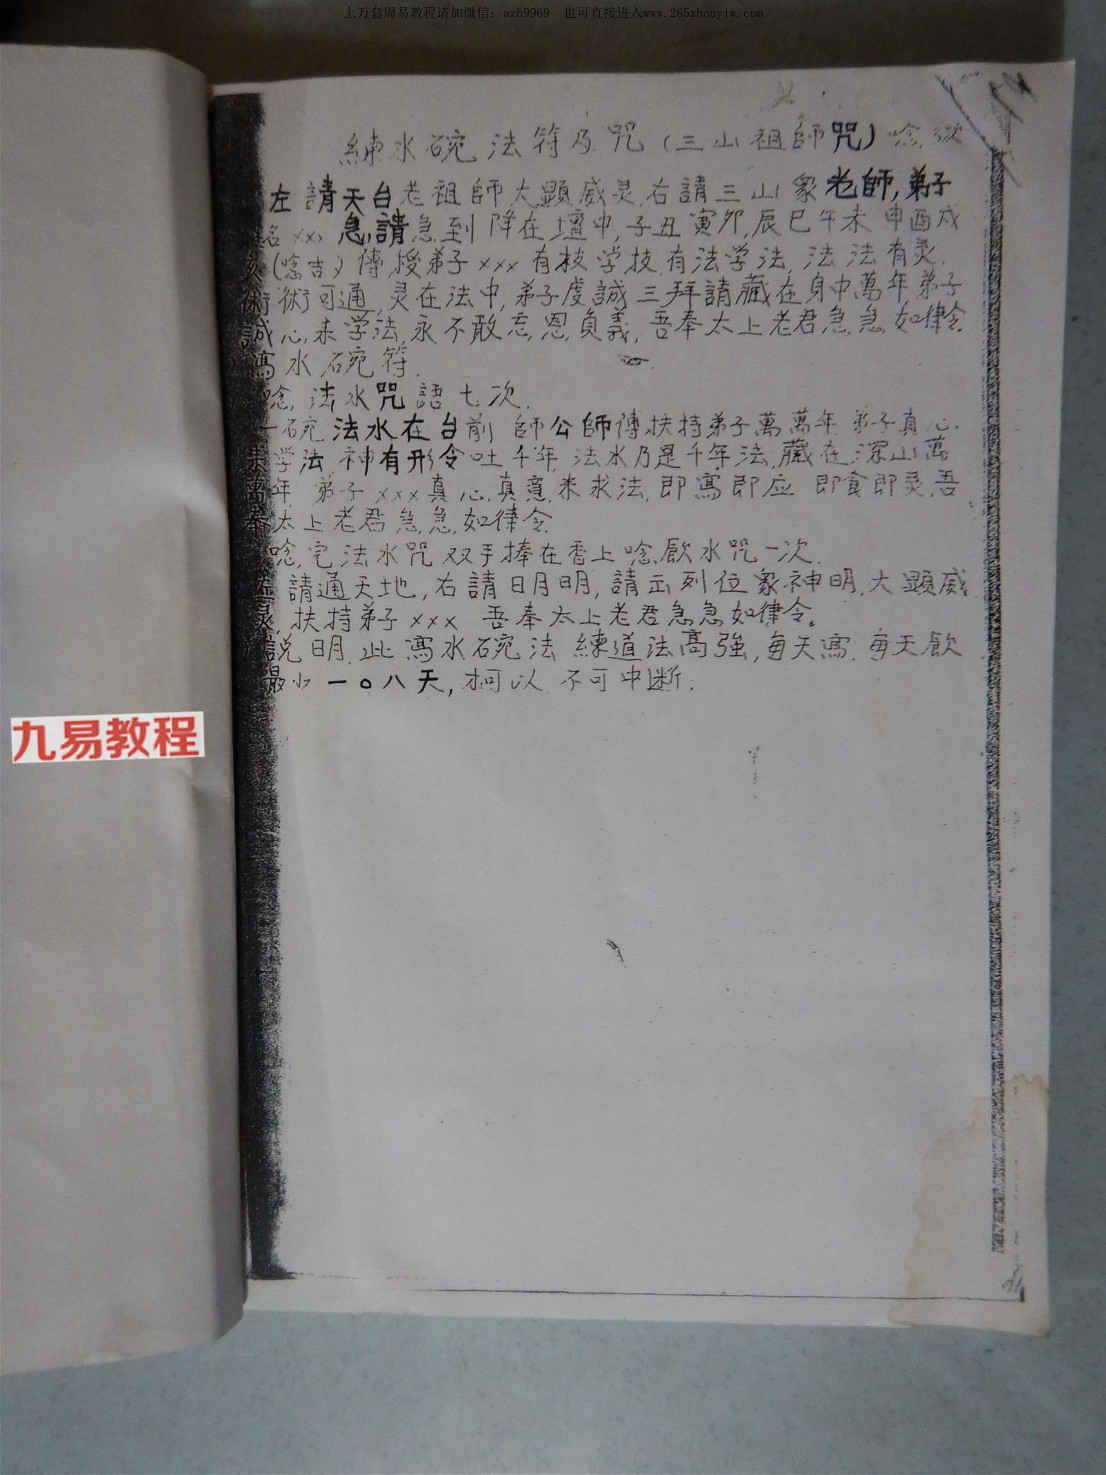 上万套周易教程请加微信：az69969 也可直接进入www.265zhouyiw.com
練水碗法符乃咒(三山祖師咒)唸
左請天台老祖師大顯威灵,右請三山衆老師,弟子
名xxx急請急到降在壇中,子丑寅卯,辰巳午未申酉戌
(唸吉)傳授弟子xxx有技学技,有法学法,法法有灵.
術術可通,灵在法中,弟子虔誠三拜請藏在身中萬年弟子
誠心来学法,永不敢忘恩負義,吾奉太上老君急急如律令
寫水碗符.
唸法水咒語七次.
一碗法水在台前 師公師傅扶持弟子萬萬年 弟子真心
来学法神有形令吐千年法水乃是千年法,藏在深山萬
萬年 弟子xxx真心真意来求法,即寫即应 即食即灵,吾
奉太上老君急急如律令
唸完法水咒双手捧在香上唸飲水咒一次.
請通天地,右請日月明,請出列位衆神明,大顯威
灵,扶持弟子xxx 吾奉太上老君急急如律令。
說明.此寫水碗法 練道法高強,每天寫.每天飲
最少一〇八天,才可以.不可中断.
九易教程